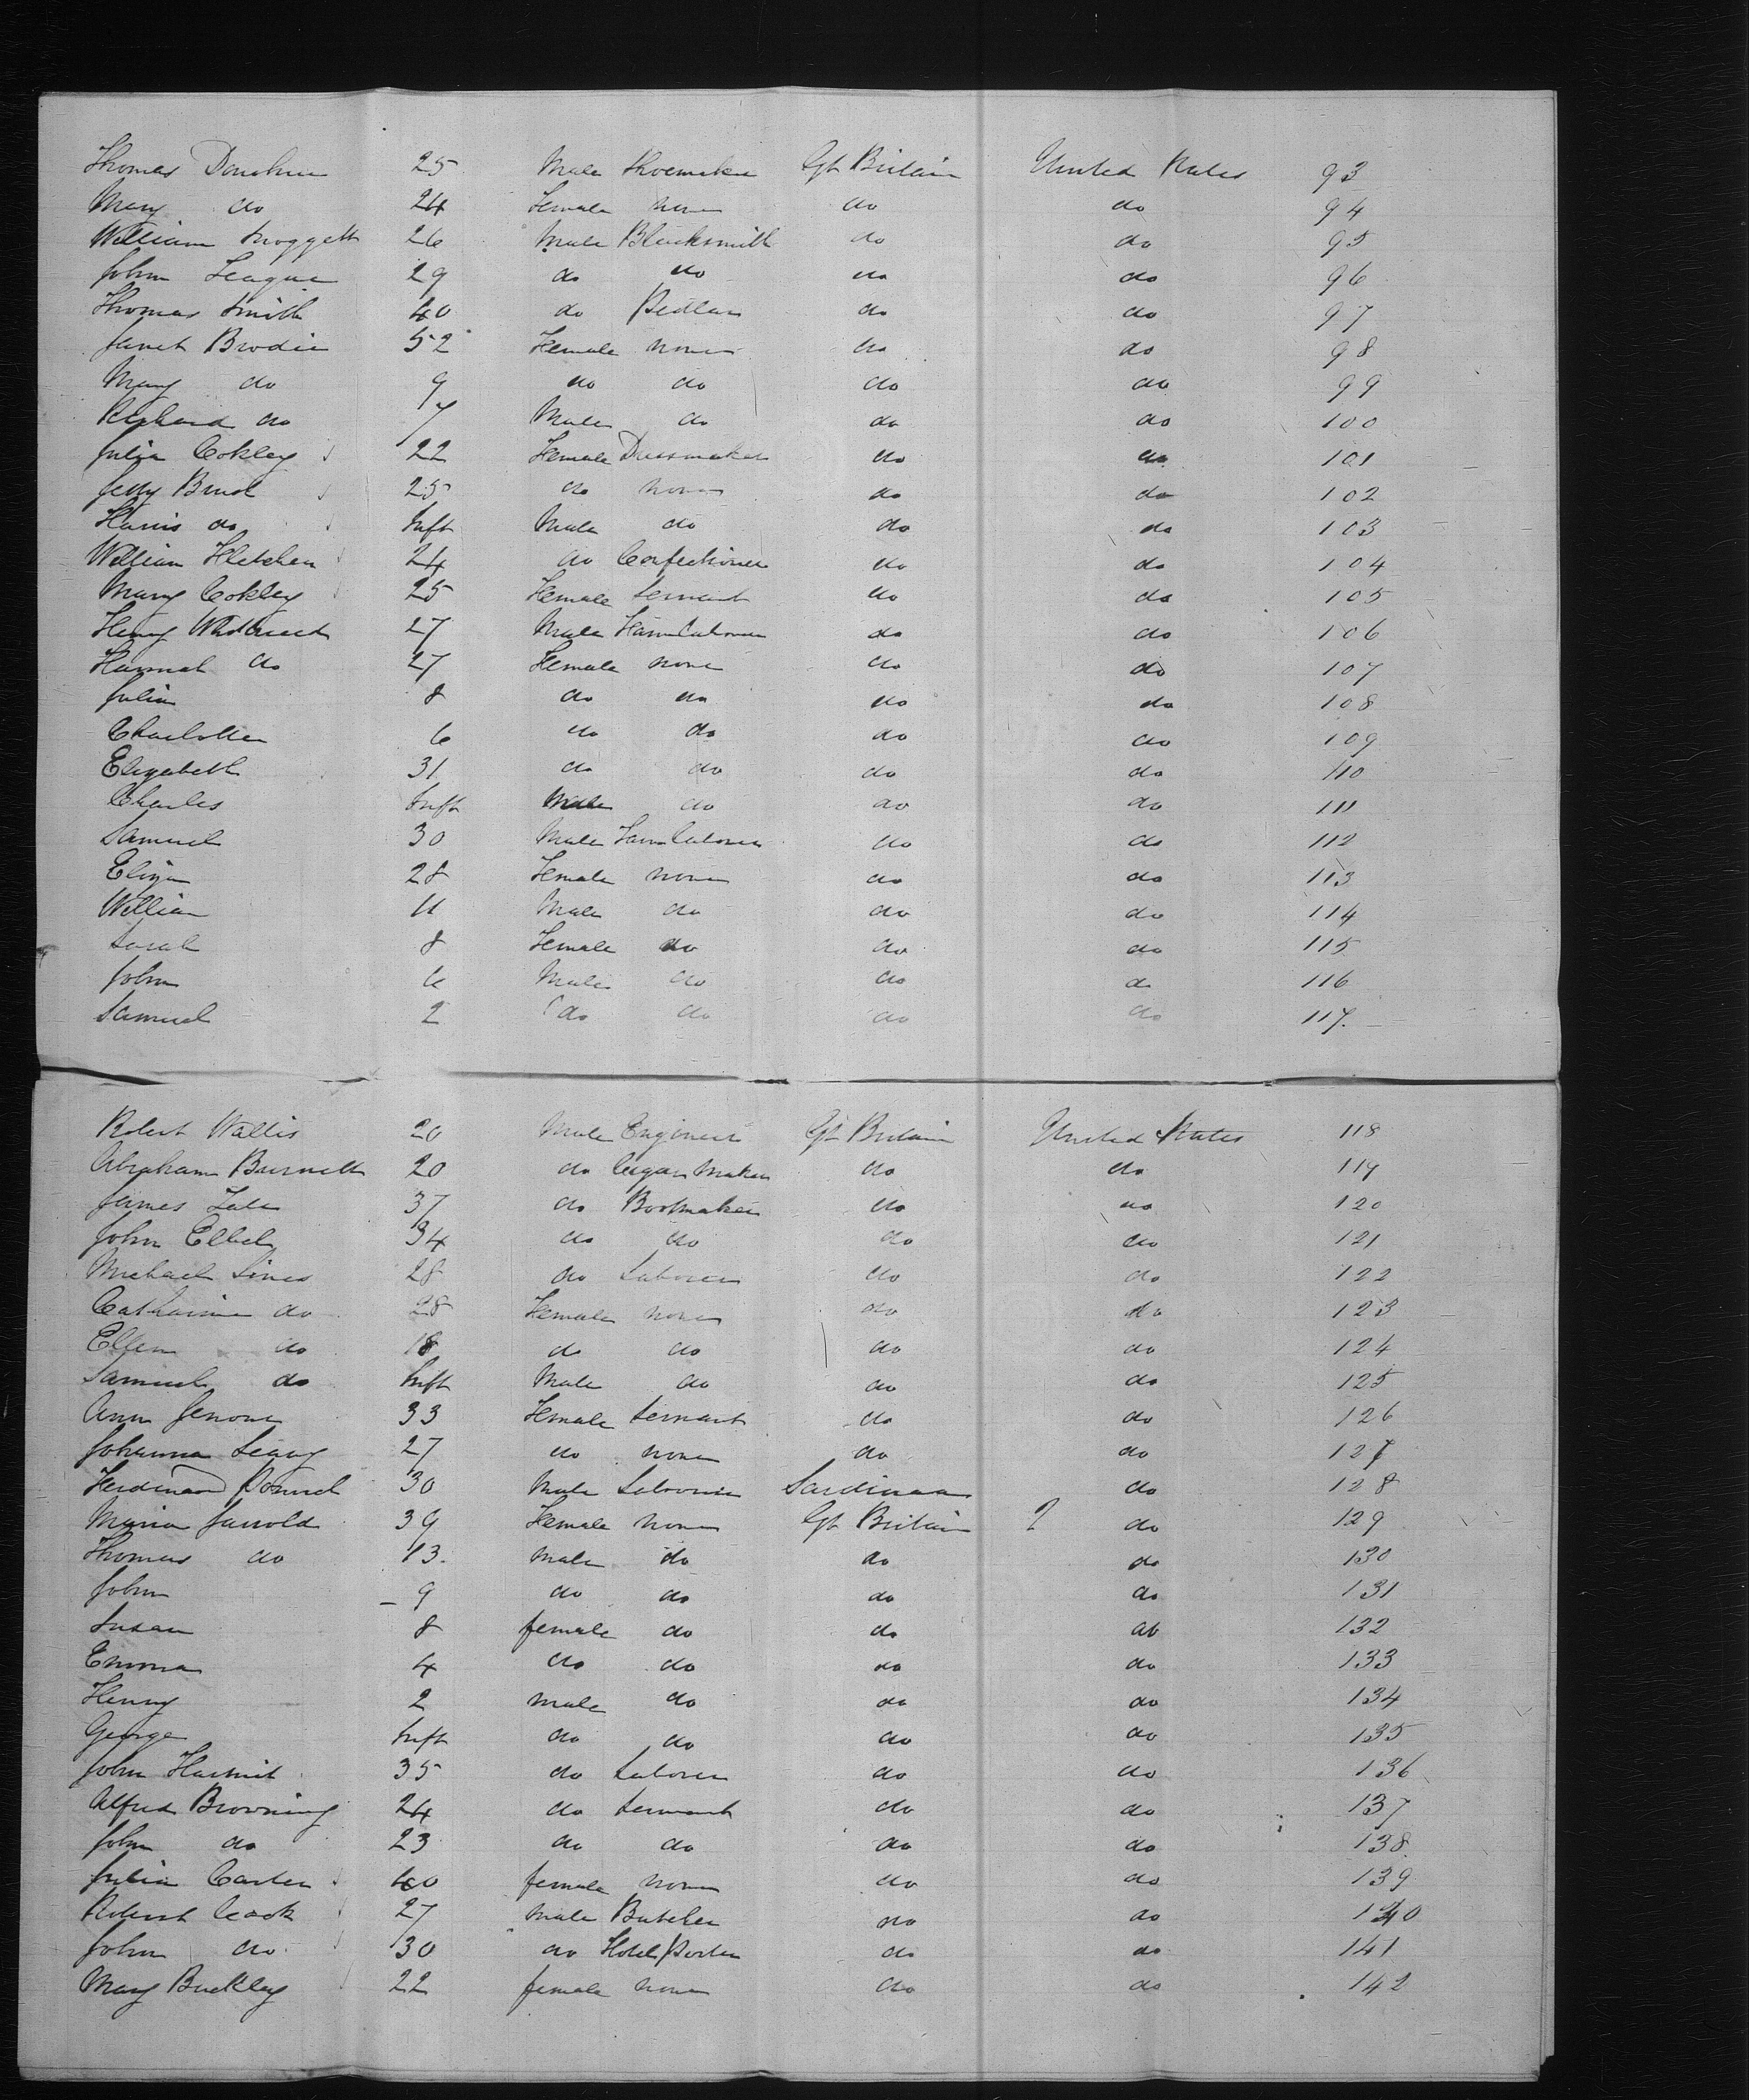 Thomas Donohue 25 Male Shoemaker Gt Britain United States 93
Mary do 24 Female none do do 94
William Snoggett 26 Male Blacksmith do do 95
John League 29 do do do do 96
Thomas Smith 40 do Pedlar do do 97
Janet Brodie 52 Female none do do 98
Mary do 9 do do do do 99
Richard do 7 Male do do do 100
Julia Cokley 22 Female Dressmaker do do 101
Jetty Brush 25 do none do do 102
Harris do Inft Male do do do 103
William Fletcher 24 do Confectioner do do 104
Mary Cokley 25 Female Servant do do 105
Henry 27 Male Farm Laborer do do 106
Hannah do 27 Female none do do 107
Julia 8 do do do do 108
Charlotte 6 do do do do 109
Elizabeth 31 do do do do 110
Charles Inft Male do do do 111
Samuel 30 Male Farm Laborer do do 112
Eliza 28 Female none do do 113
William 11 Male do do do 114
Sarah 8 Female do do do 115
John 6 Male do do do 116
Samuel 2 do do do do 117.
Robert Wallis 20 Male Engineer Gt Britain United States 118
Abraham Burnett 20 do Cigar Maker do do 119
James Tate 37 do Bootmaker do do 120
John Ellet 34 do do do do 121
Michael Sines 28 do Laborer do do 122
Catharine do 28 Female none do do 123
Ellen do 18 do do do do 124
Samuel do Inft Male do do do 125
Ann Jerrom 33 Female Servant do do 126
Johanna Leary 27 do none do do 127
Ferdinand 30 Male Laborer Sardinia do 128
Maria Jarrold 39 Female none Gt Britain do 129
Thomas do 13. male do do do 130
John 9 do do do do 131
Susan 8 female do do do 132
Emma 4 do do do do 133
Henry 2 male do do do 134
George Inft do do do do 135
John 35 do Laborer do do 136
Alfred Browning 24 do Servant do do 137
John do 23 do do do do 138
Julia Carter 40 female none do do 139
Robert Cook 27 male Butcher do do 140
John do 30 do Hotel Porter do do 141
Mary Buckley 22 female none do do 142